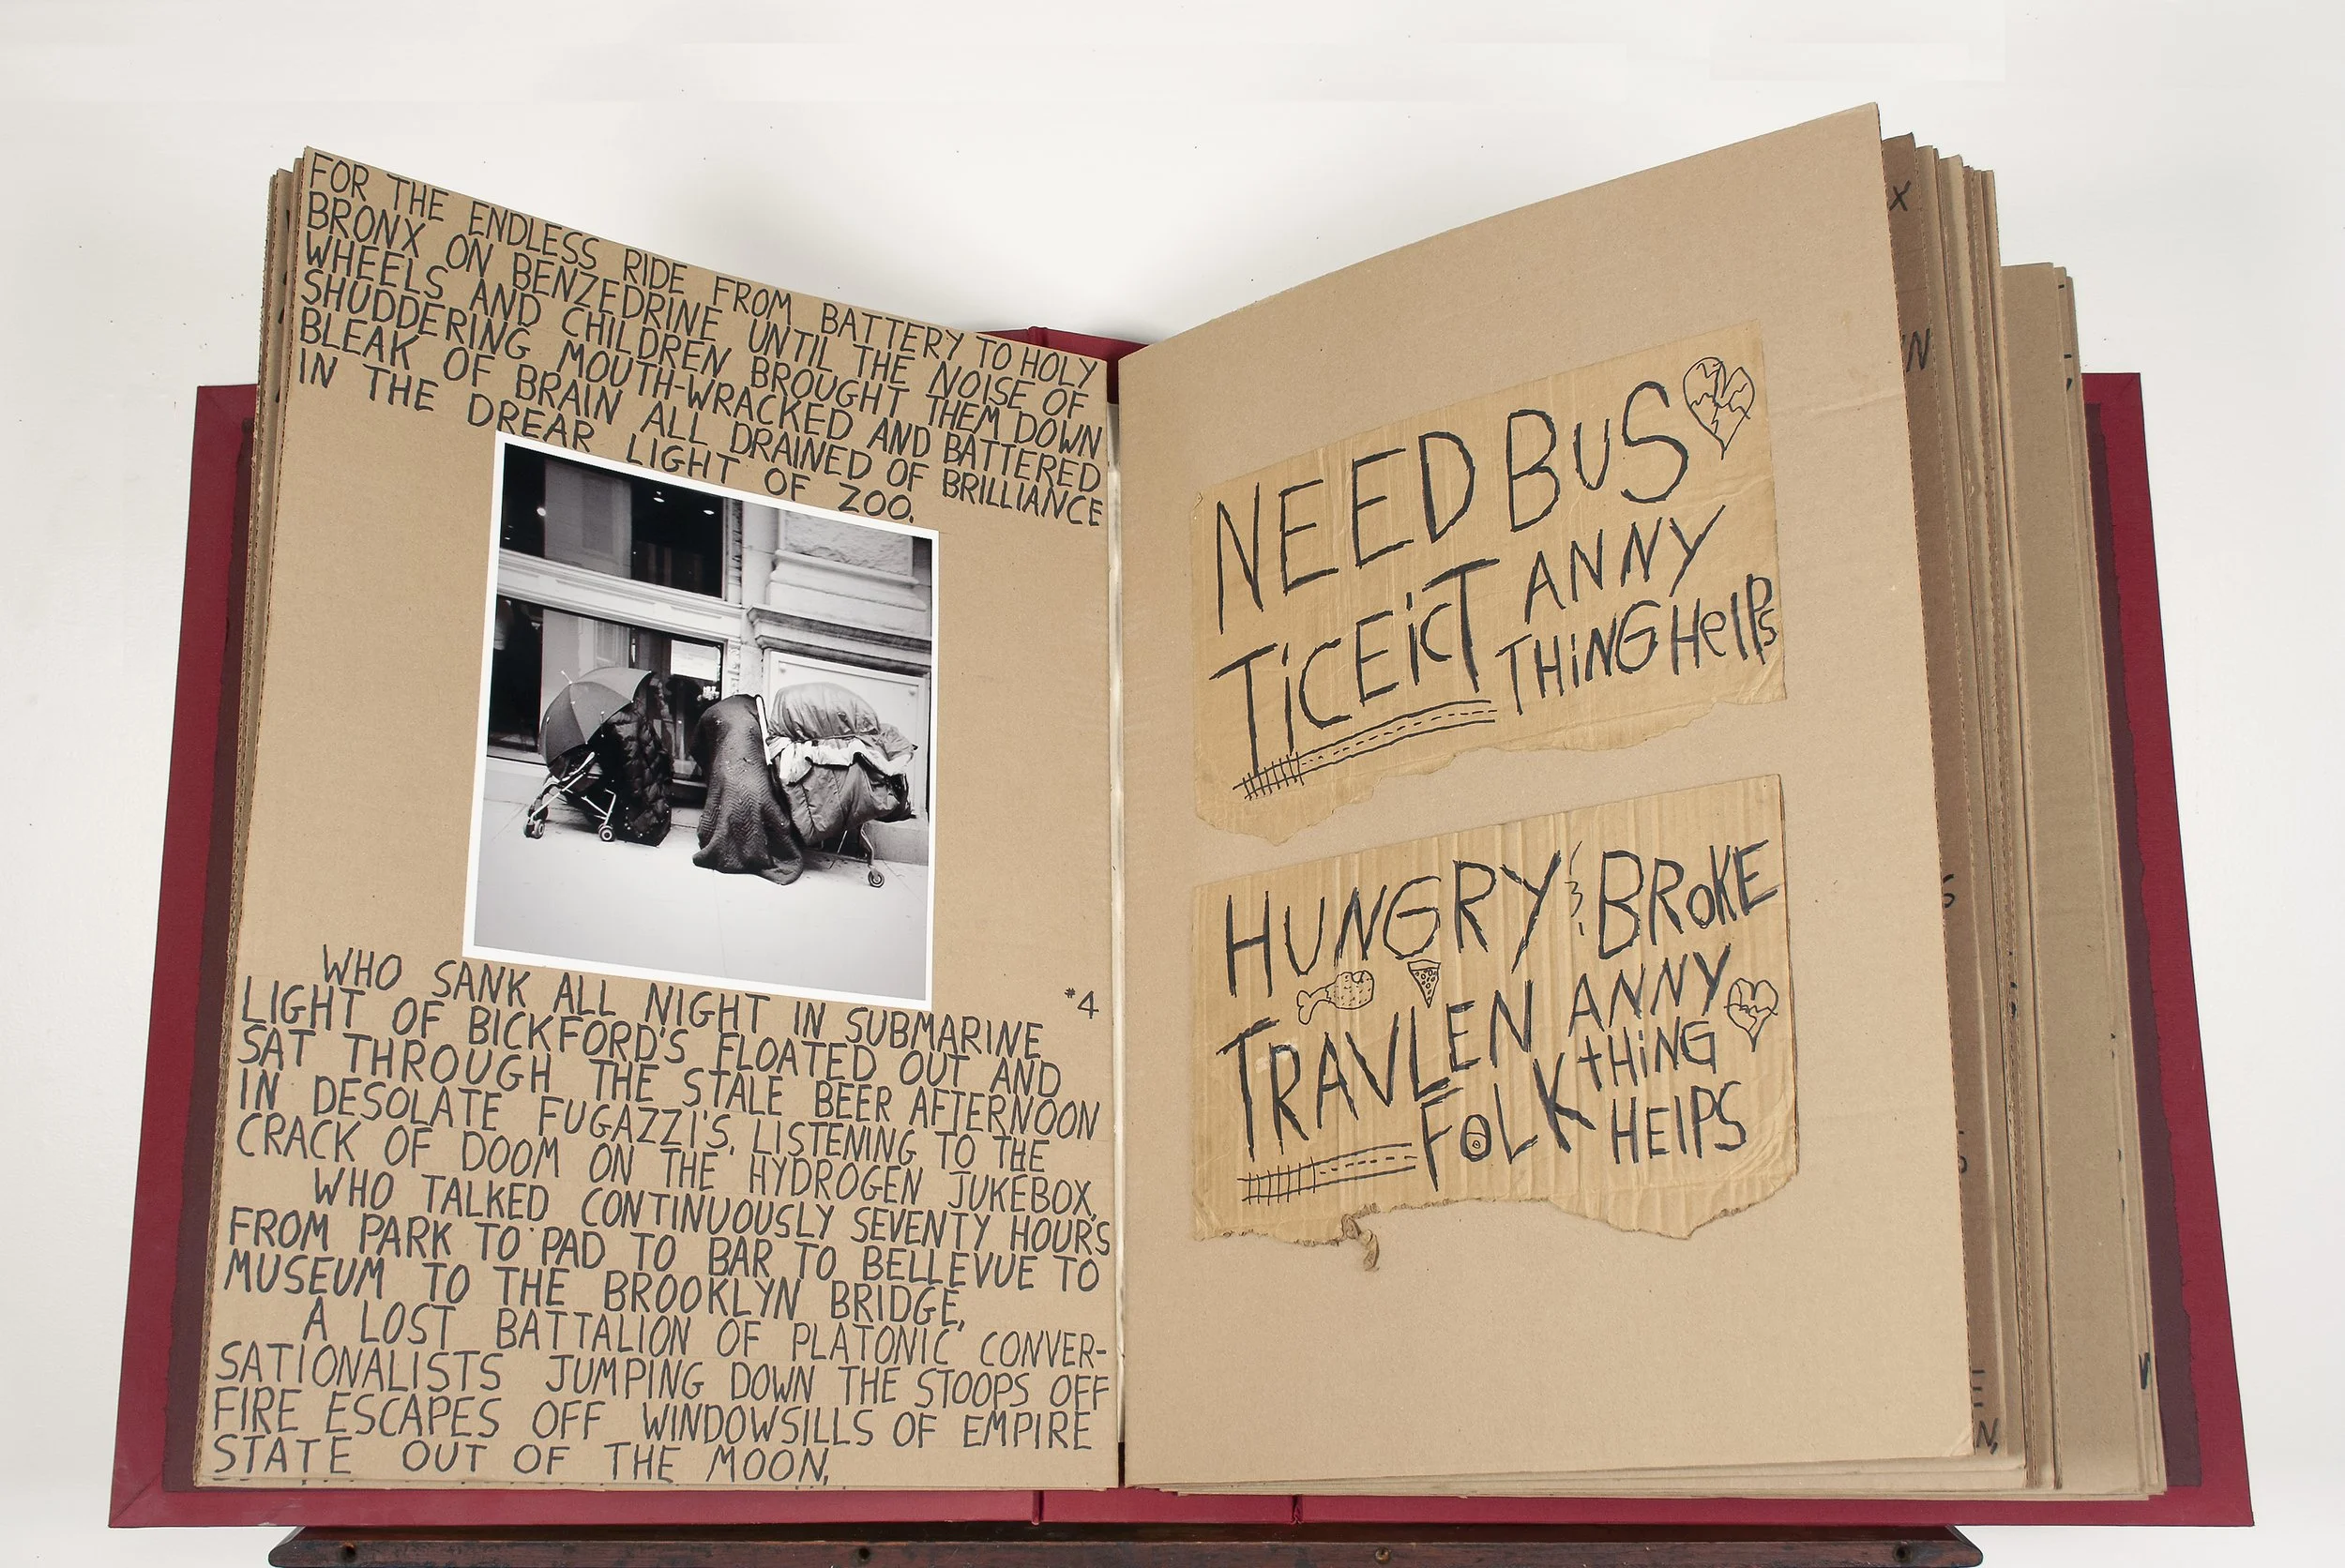 FOR THE ENDLESS RIDE FROM BATTERY TO HOLY
BRONX ON BENZEDRINE UNTIL THE NOISE OF
WHEELS AND CHILDREN BROUGHT THEM DOWN
SHUDDERING MOUTH-WRACKED AND BATTERED
BLEAK OF BRAIN ALL DRAINED OF BRILLIANCE
IN THE DREAR LIGHT OF ZOO.
#4
WHO SANK ALL NIGHT IN SUBMARINE
LIGHT OF BICKFORD'S FLOATED OUT AND
SAT THROUGH THE STALE BEER AFTERNOON
IN DESOLATE FUGAZZI'S, LISTENING TO THE
CRACK OF DOOM ON THE HYDROGEN JUKEBOX,
WHO TALKED CONTINUOUSLY SEVENTY HOURS
FROM PARK TO PAD TO BAR TO BELLEVUE TO
MUSEUM TO THE BROOKLYN BRIDGE,
A LOST BATTALION OF PLATONIC CONVER-
SATIONALISTS JUMPING DOWN THE STOOPS OFF
FIRE ESCAPES OFF WINDOWSILLS OF EMPIRE
STATE OUT OF THE MOON,
NEED BUS
TiCEicT ANNY
THiNG HelPs
HUNGRY & BROKE
TRAVLEN ANNY
FOLK tHiNG
HElPS